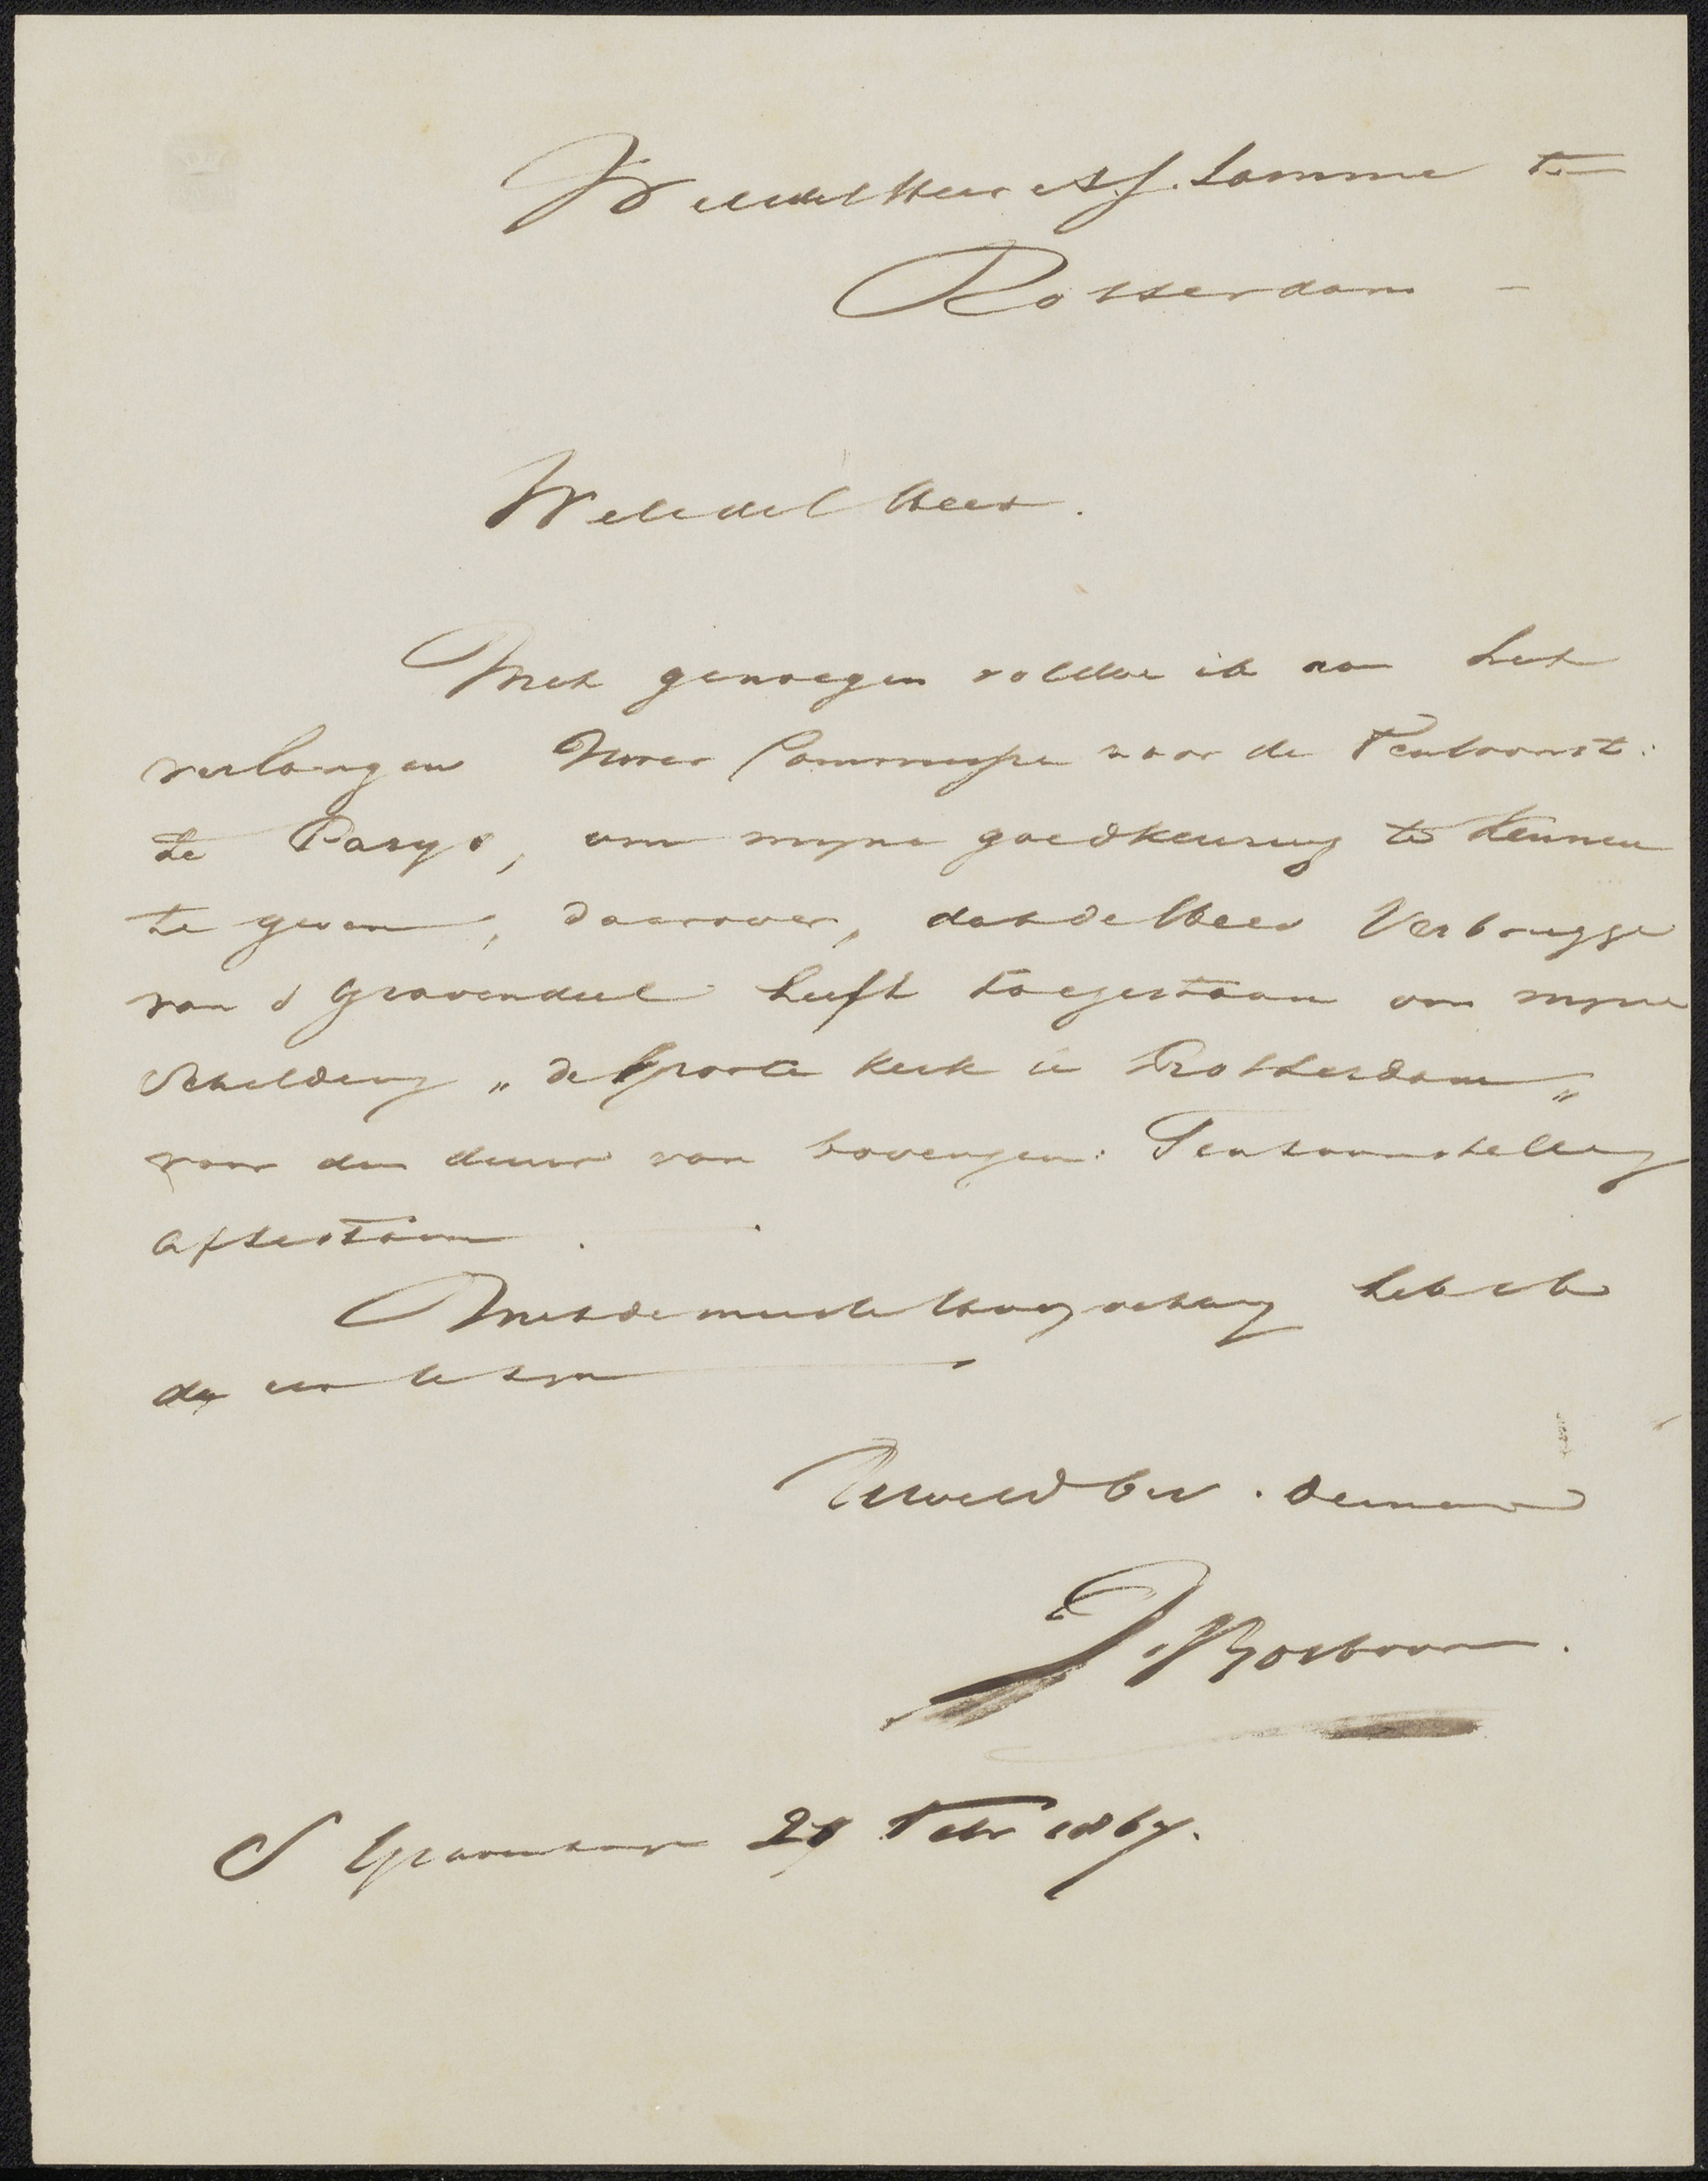 Weledel Heer A J. Lamme te
Rotterdam -
Weledel Heer.
Met genoegen voldoe ik aan het
verlangen Uwer Commissie voor de Tentoonst:
te Parys, om myne goedkeuring te kennen
te geven, daarover, dat de Heer Verbrugge
van s Gravendeel heeft toegestaan om myne
Schildery „ de Groote Kerk te Rotterdam „
voor den duur van bovengen: Tentoonstelling
aftestaan.
Met de meeste Hoogachting heb ik
de eer te zyn
UwelEd Gev. Dienaar
J. Bosboom.
S Gravenhage 21 Febr 1867.